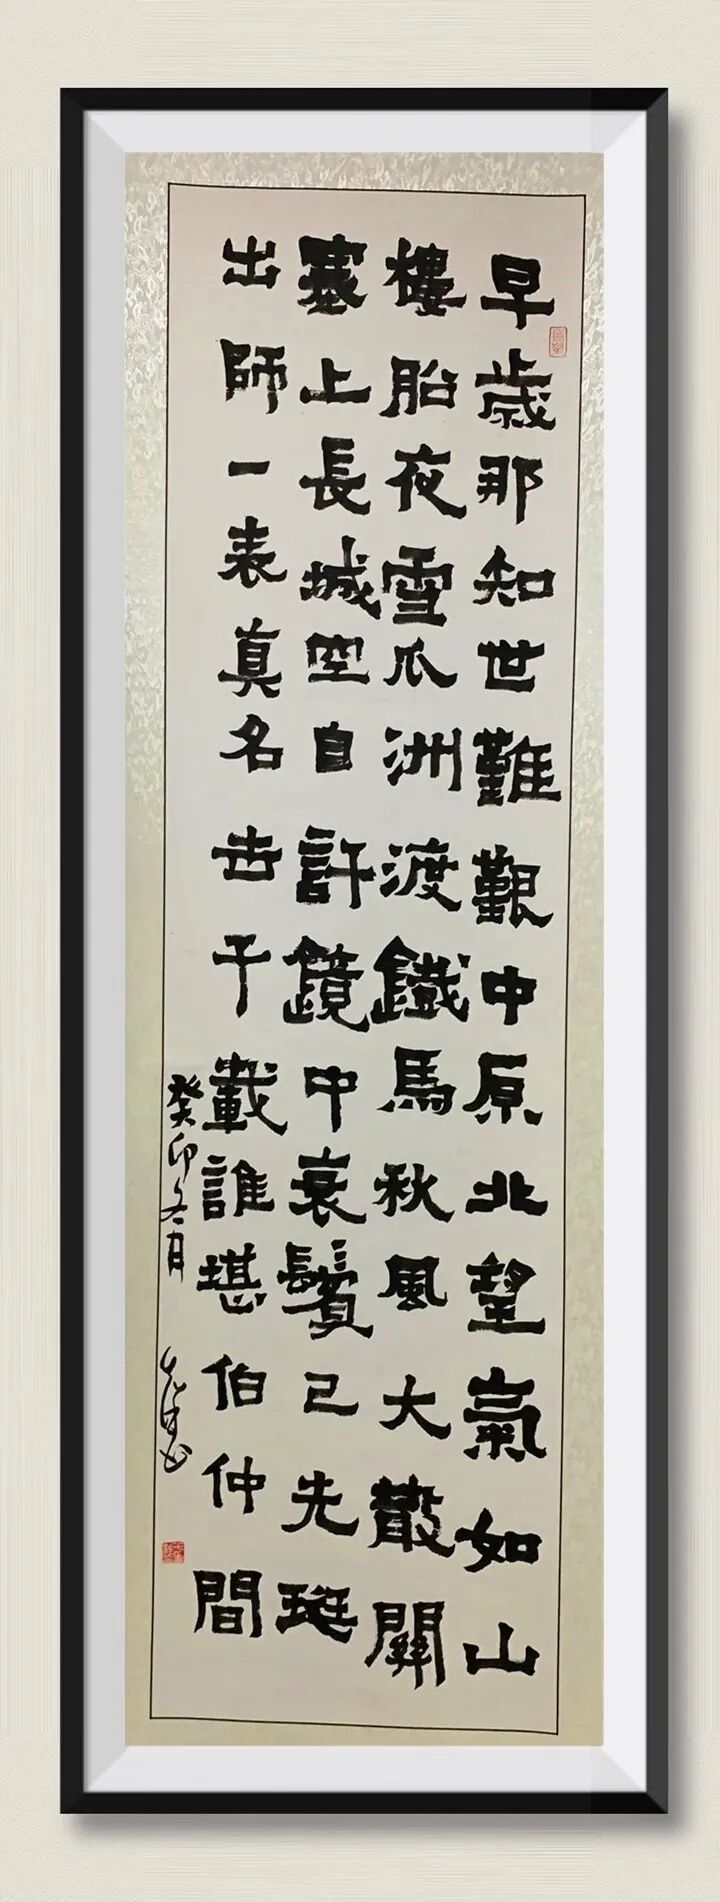 早歲那知世難艱中原北望氣如山
樓船夜雪瓜洲渡鐵馬秋風大散關
塞上長城空自許鏡中衰鬢已先斑
出師一表真名世千載誰堪伯仲間
癸卯冬月